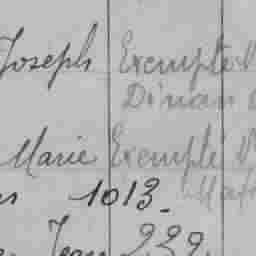 Joseph Exempté
Dinan
Marie Exempté
1013.
Jean 239.